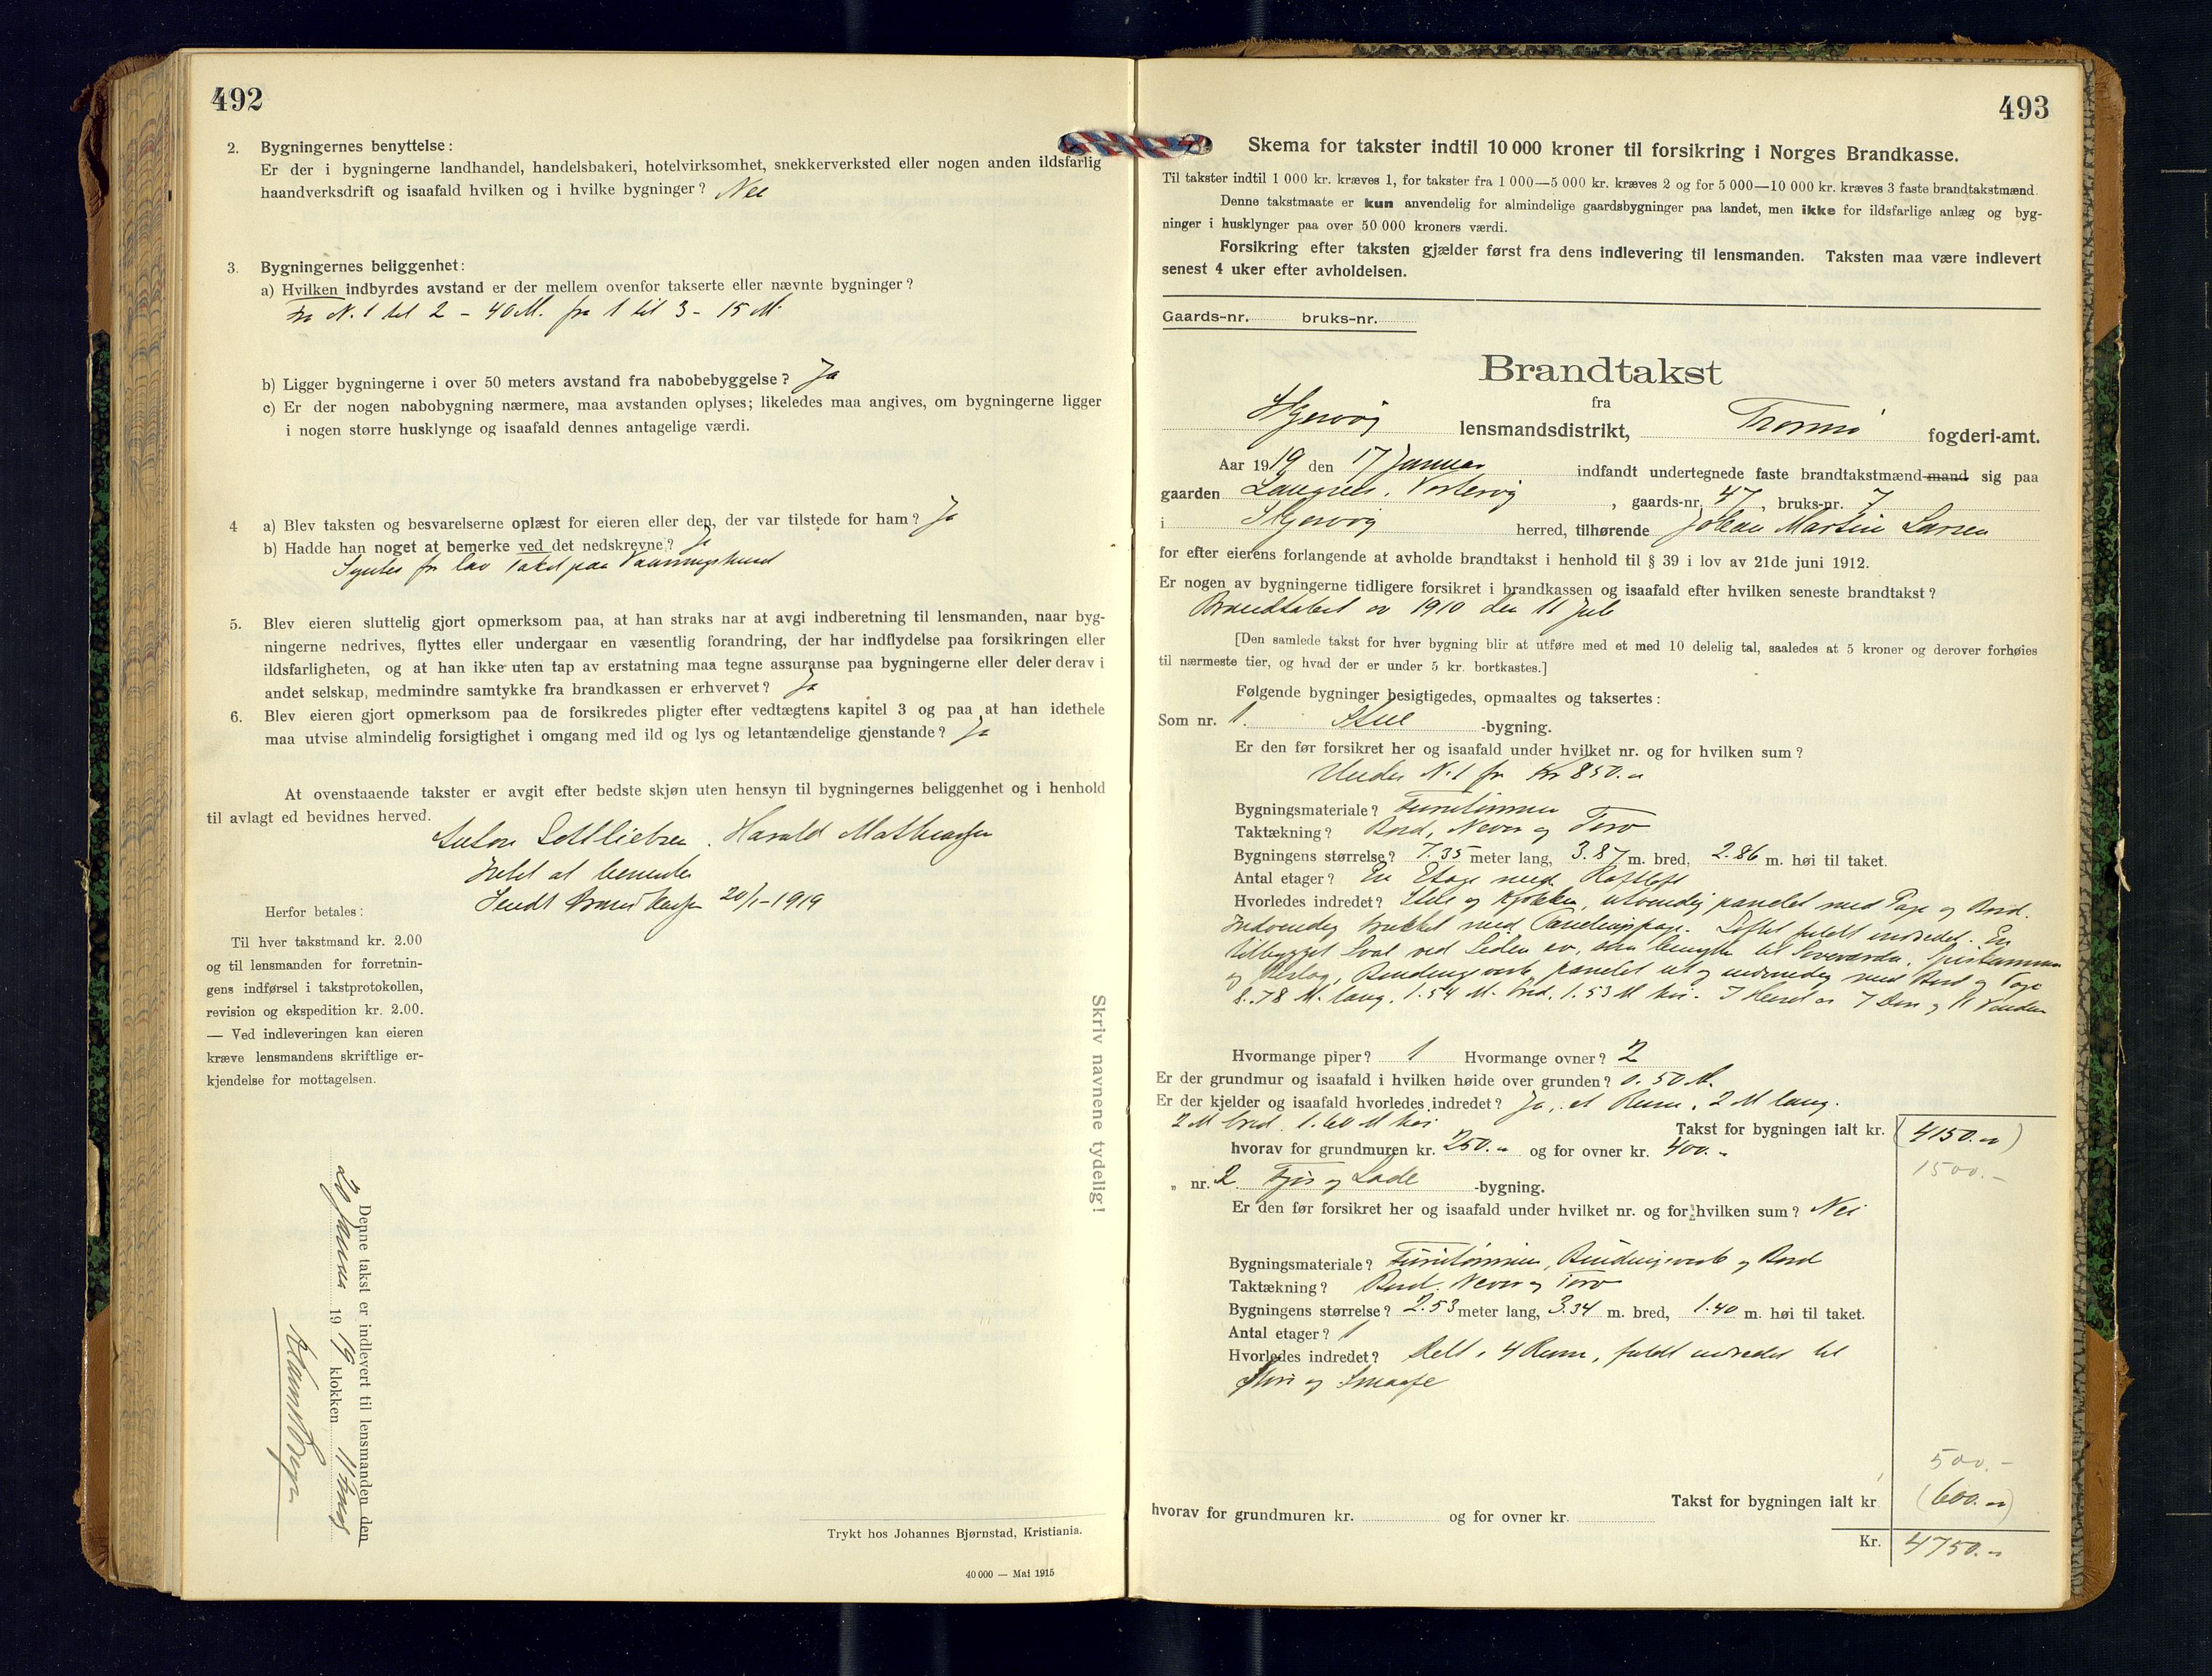 492
2. Bygningernes benyttelse:
Er der i bygningerne landhandel, handelsbakeri, hotelvirksomhet, snekkerverksted eller nogen anden ildsfarlig
haandverksdrift og isaafald hvilken og i hvilke bygninger? Nei
3. Bygningernes beliggenhet:
a) Hvilken indbyrdes avstand er der mellem ovenfor takserte eller nævnte bygninger?
Fra N. 1 til 2 - 40 M. fra 1 til 3 - 15 M.
b) Ligger bygningerne i over 50 meters avstand fra nabobebyggelse? Ja
c) Er der nogen nabobygning nærmere, maa avstanden oplyses; likeledes maa angives, om bygningerne ligger
i nogen større husklynge og isaafald dennes antagelige værdi.
4 a) Blev taksten og besvarelserne oplæst for eieren eller den, der var tilstede for ham? Ja
b) Hadde han noget at bemerke ved det nedskrevne? Ja
Syntes for lav Takst paa Vaaningshuset
5. Blev eieren sluttelig gjort opmerksom paa, at han straks har at avgi indberetning til lensmanden, naar byg-
ningerne nedrives, flyttes eller undergaar en væsentlig forandring, der har indflydelse paa forsikringen eller
ildsfarligheten, og at han ikke uten tap av erstatning maa tegne assuranse paa bygningerne eller deler derav i
andet selskap, medmindre samtykke fra brandkassen er erhvervet? Ja
6. Blev eieren gjort opmerksom paa de forsikredes pligter efter vedtægtens kapitel 3 og paa at han idethele
maa utvise almindelig forsigtighet i omgang med ild og lys og letantændelige gjenstande? Ja
At ovenstaaende takster er avgit efter bedste skjøn uten hensyn til bygningernes beliggenhet og i henhold
til avlagt ed bevidnes herved.
Anton Gottliebsen. Harald Mathiassen
Intet at bemerke
Sendt Brandkassen 20/1-1919
Herfor betales:
Til hver takstmand kr. 2.00
og til lensmanden for forretnin-
gens indførsel i takstprotokollen,
revision og ekspedition kr. 2.00.
— Ved indleveringen kan eieren
kræve lensmandens skriftlige er-
kjendelse for mottagelsen.
Skriv navnene tydelig!
Denne takst er indlevert til lensmanden den
20 Januar 1919 klokken 11
Trykt hos Johannes Bjørnstad, Kristiania.
40 000 — Mai 1915
493
Skema for takster indtil 10 000 kroner til forsikring i Norges Brandkasse.
Til takster indtil 1 000 kr. kræves 1, for takster fra 1 000—5 000 kr. kræves 2 og for 5 000—10 000 kr. kræves 3 faste brandtakstmænd.
Denne takstmaate er kun anvendelig for almindelige gaardsbygninger paa landet, men ikke for ildsfarlige anlæg og byg-
ninger i husklynger paa over 50 000 kroners værdi.
Forsikring efter taksten gjælder først fra dens indlevering til lensmanden. Taksten maa være indlevert
senest 4 uker efter avholdelsen.
Gaards-nr. bruks-nr.
Brandtakst
fra
Skjervøy lensmandsdistrikt, Tromsø fogderi-amt.
Aar 1919 den 17 Januar indfandt undertegnede faste brandtakstmænd-mand sig paa
gaarden , gaards-nr. 47, bruks-nr. 7
i Skjervøy herred, tilhørende Johan Martin Larsen
for efter eierens forlangende at avholde brandtakst i henhold til § 39 i lov av 21de juni 1912.
Er nogen av bygningerne tidligere forsikret i brandkassen og isaafald efter hvilken seneste brandtakst?
Brandtakst av 1910 den 11 Juli
[Den samlede takst for hver bygning blir at utføre med et med 10 delelig tal, saaledes at 5 kroner og derover forhøies
til nærmeste tier, og hvad der er under 5 kr. bortkastes.]
Følgende bygninger besigtigedes, opmaaltes og taksertes:
Som nr. 1. Stue -bygning.
Er den før forsikret her og isaafald under hvilket nr. og for hvilken sum?
Under N. 1 for Kr 850.-
Bygningsmateriale? Furutømmer
Taktækning? Bord, Never og Torv
Bygningens størrelse? 7.35 meter lang, 3.87 m. bred, 2.86 m. høi til taket.
Antal etager? En Etage med Loftsløft
Hvorledes indredet? Stue og Kjøkken, utvendig panelet med Pap og Bord.
Indvendig trukket med . Loftet fuldt indredet. En
tilbygget Sval ved Siden av, som benyttes til Soveværelse, Spiskammer
og , Bindingsverk, panelet ut og indvendig med Bord og Pap
8.78 M. lang, 1.54 M. bred, 1.53 M høi. I Huset er 7 Døre og 11 Vinduer
Hvormange piper? 1 Hvormange ovner? 2
Er der grundmur og isaafald i hvilken høide over grunden? 0.50 M.
Er der kjelder og isaafald hvorledes indredet? Ja, et Rum, 2 M lang.
2 M bred, 1.60 M høi Takst for bygningen ialt kr. (4150.-)
hvorav for grundmuren kr. 250.- og for ovner kr. 400.-
1500.-
„ nr. 2 Fjøs og Lade -bygning.
Er den før forsikret her og isaafald under hvilket nr. og for hvilken sum? Nei
Bygningsmateriale? Furutømmer, Bindingsverk og Bord
Taktækning? Bord, Never og Torv
Bygningens størrelse? 2.53 meter lang, 3.34 m. bred, 1.40 m. høi til taket.
Antal etager? 1
Hvorledes indredet? Delt i 4 Rum, fuldt indredet til
og Smaafe
500.-
Takst for bygningen ialt kr (600.-)
hvorav for grundmuren kr. og for ovner kr.
Kr. 4750.-